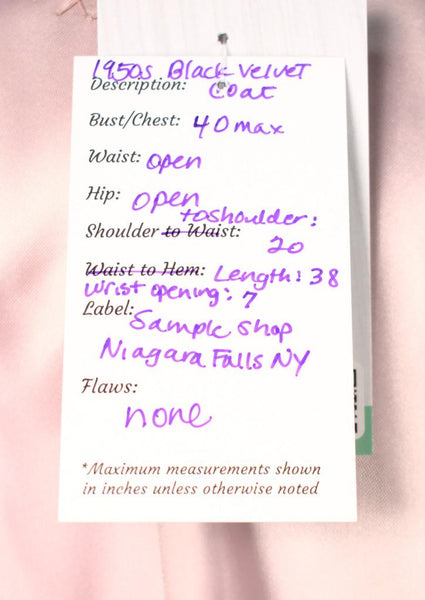 1950s Black Velvet
Description: Coat
Bust/Chest: 40 max
Waist: open
Hip: open
to shoulder:
Shoulder to Waist: 20
Waist to Hem: Length: 38
wrist opening: 7
Label:
Sample Shop
Niagara Falls NY
Flaws:
none
*Maximum measurements shown
in inches unless otherwise noted